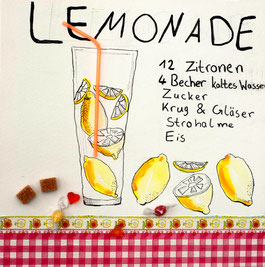 LEMONADE
12 Zitronen
4 Becher kaltes Wasser
Zucker
Krug & Gläser
Strohalme
Eis